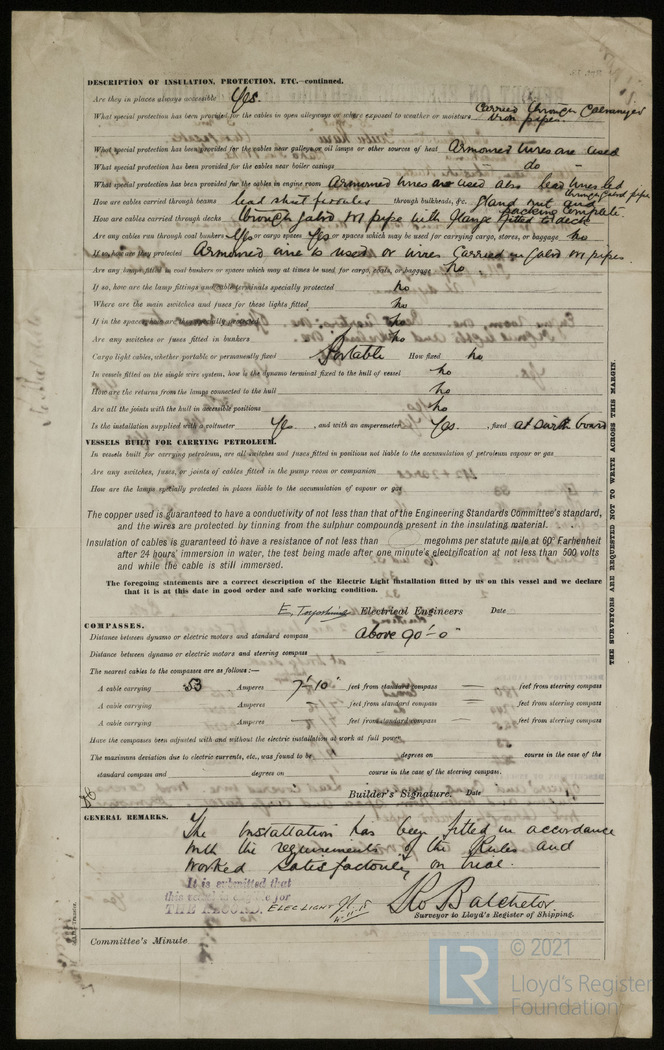 DESCRIPTION OF INSULATION, PROTECTION, ETC.—continued.
Are they in places always accessible Yes.
What special protection has been provided for the cables in open alleyways or where exposed to weather or moisture Carried through
iron pipes.
What special protection has been provided for the cables near galleys or oil lamps or other sources of heat Armoured wires are used
What special protection has been provided for the cables near boiler casings — do —
What special protection has been provided for the cables in engine room Armoured wires are used also lead wires led
through Galvd pipe
How are cables carried through beams lead ferrules through bulkheads, &c. Gland nut and
packing complete.
How are cables carried through decks Wrought galvd pipe with flange fitted to deck
Are any cables run through coal bunkers Yes or cargo spaces Yes or spaces which may be used for carrying cargo, stores, or baggage no
If so, how are they protected Armoured used or wires Carried in Galvd pipes.
Are any lamps fitted in coal bunkers or spaces which may at times be used for cargo, coals, or baggage no
If so, how are the lamp fittings and cable terminals specially protected no
Where are the main switches and fuses for these lights fitted no
If in the spaces, how are they specially protected no
Are any switches or fuses fitted in bunkers no
Cargo light cables, whether portable or permanently fixed Portable How fixed no
In vessels fitted on the single wire system, how is the dynamo terminal fixed to the hull of vessel no
How are the returns from the lamps connected to the hull no
Are all the joints with the hull in accessible positions no
Is the installation supplied with a voltmeter Yes, and with an amperemeter Yes., fixed at board
VESSELS BUILT FOR CARRYING PETROLEUM.
In vessels built for carrying petroleum, are all switches and fuses fitted in positions not liable to the accumulation of petroleum vapour or gas
Are any switches, fuses, or joints of cables fitted in the pump room or companion
How are the lamps specially protected in places liable to the accumulation of vapour or gas
The copper used is guaranteed to have a conductivity of not less than that of the Engineering Standards Committee's standard,
and the wires are protected by tinning from the sulphur compounds present in the insulating material.
Insulation of cables is guaranteed to have a resistance of not less than megohms per statute mile at 60° Farhenheit
after 24 hours' immersion in water, the test being made after one minute's electrification at not less than 500 volts
and while the cable is still immersed.
The foregoing statements are a correct description of the Electric Light installation fitted by us on this vessel and we declare
that it is at this date in good order and safe working condition.
Electrical Engineers Date
COMPASSES.
Distance between dynamo or electric motors and standard compass Above 90'-0"
Distance between dynamo or electric motors and steering compass
The nearest cables to the compasses are as follows:—
A cable carrying 53 Amperes 7'-10" feet from standard compass — feet from steering compass
A cable carrying Amperes feet from standard compass — feet from steering compass
A cable carrying Amperes feet from standard compass — feet from steering compass
Have the compasses been adjusted with and without the electric installation at work at full power
The maximum deviation due to electric currents, etc., was found to be degrees on course in the case of the
standard compass and degrees on course in the case of the steering compass.
Builder's Signature. Date
GENERAL REMARKS.
The Installation has been fitted in accordance
with the requirements of the Rules and
worked satisfactorily on trial.
It is submitted that
this vessel is eligible for
THE RECORD. ELEC LIGHT
Surveyor to Lloyd's Register of Shipping.
Committee's Minute
THE SURVEYORS ARE REQUESTED NOT TO WRITE ACROSS THIS MARGIN.
LR
© 2021
Lloyd's Register
Foundation